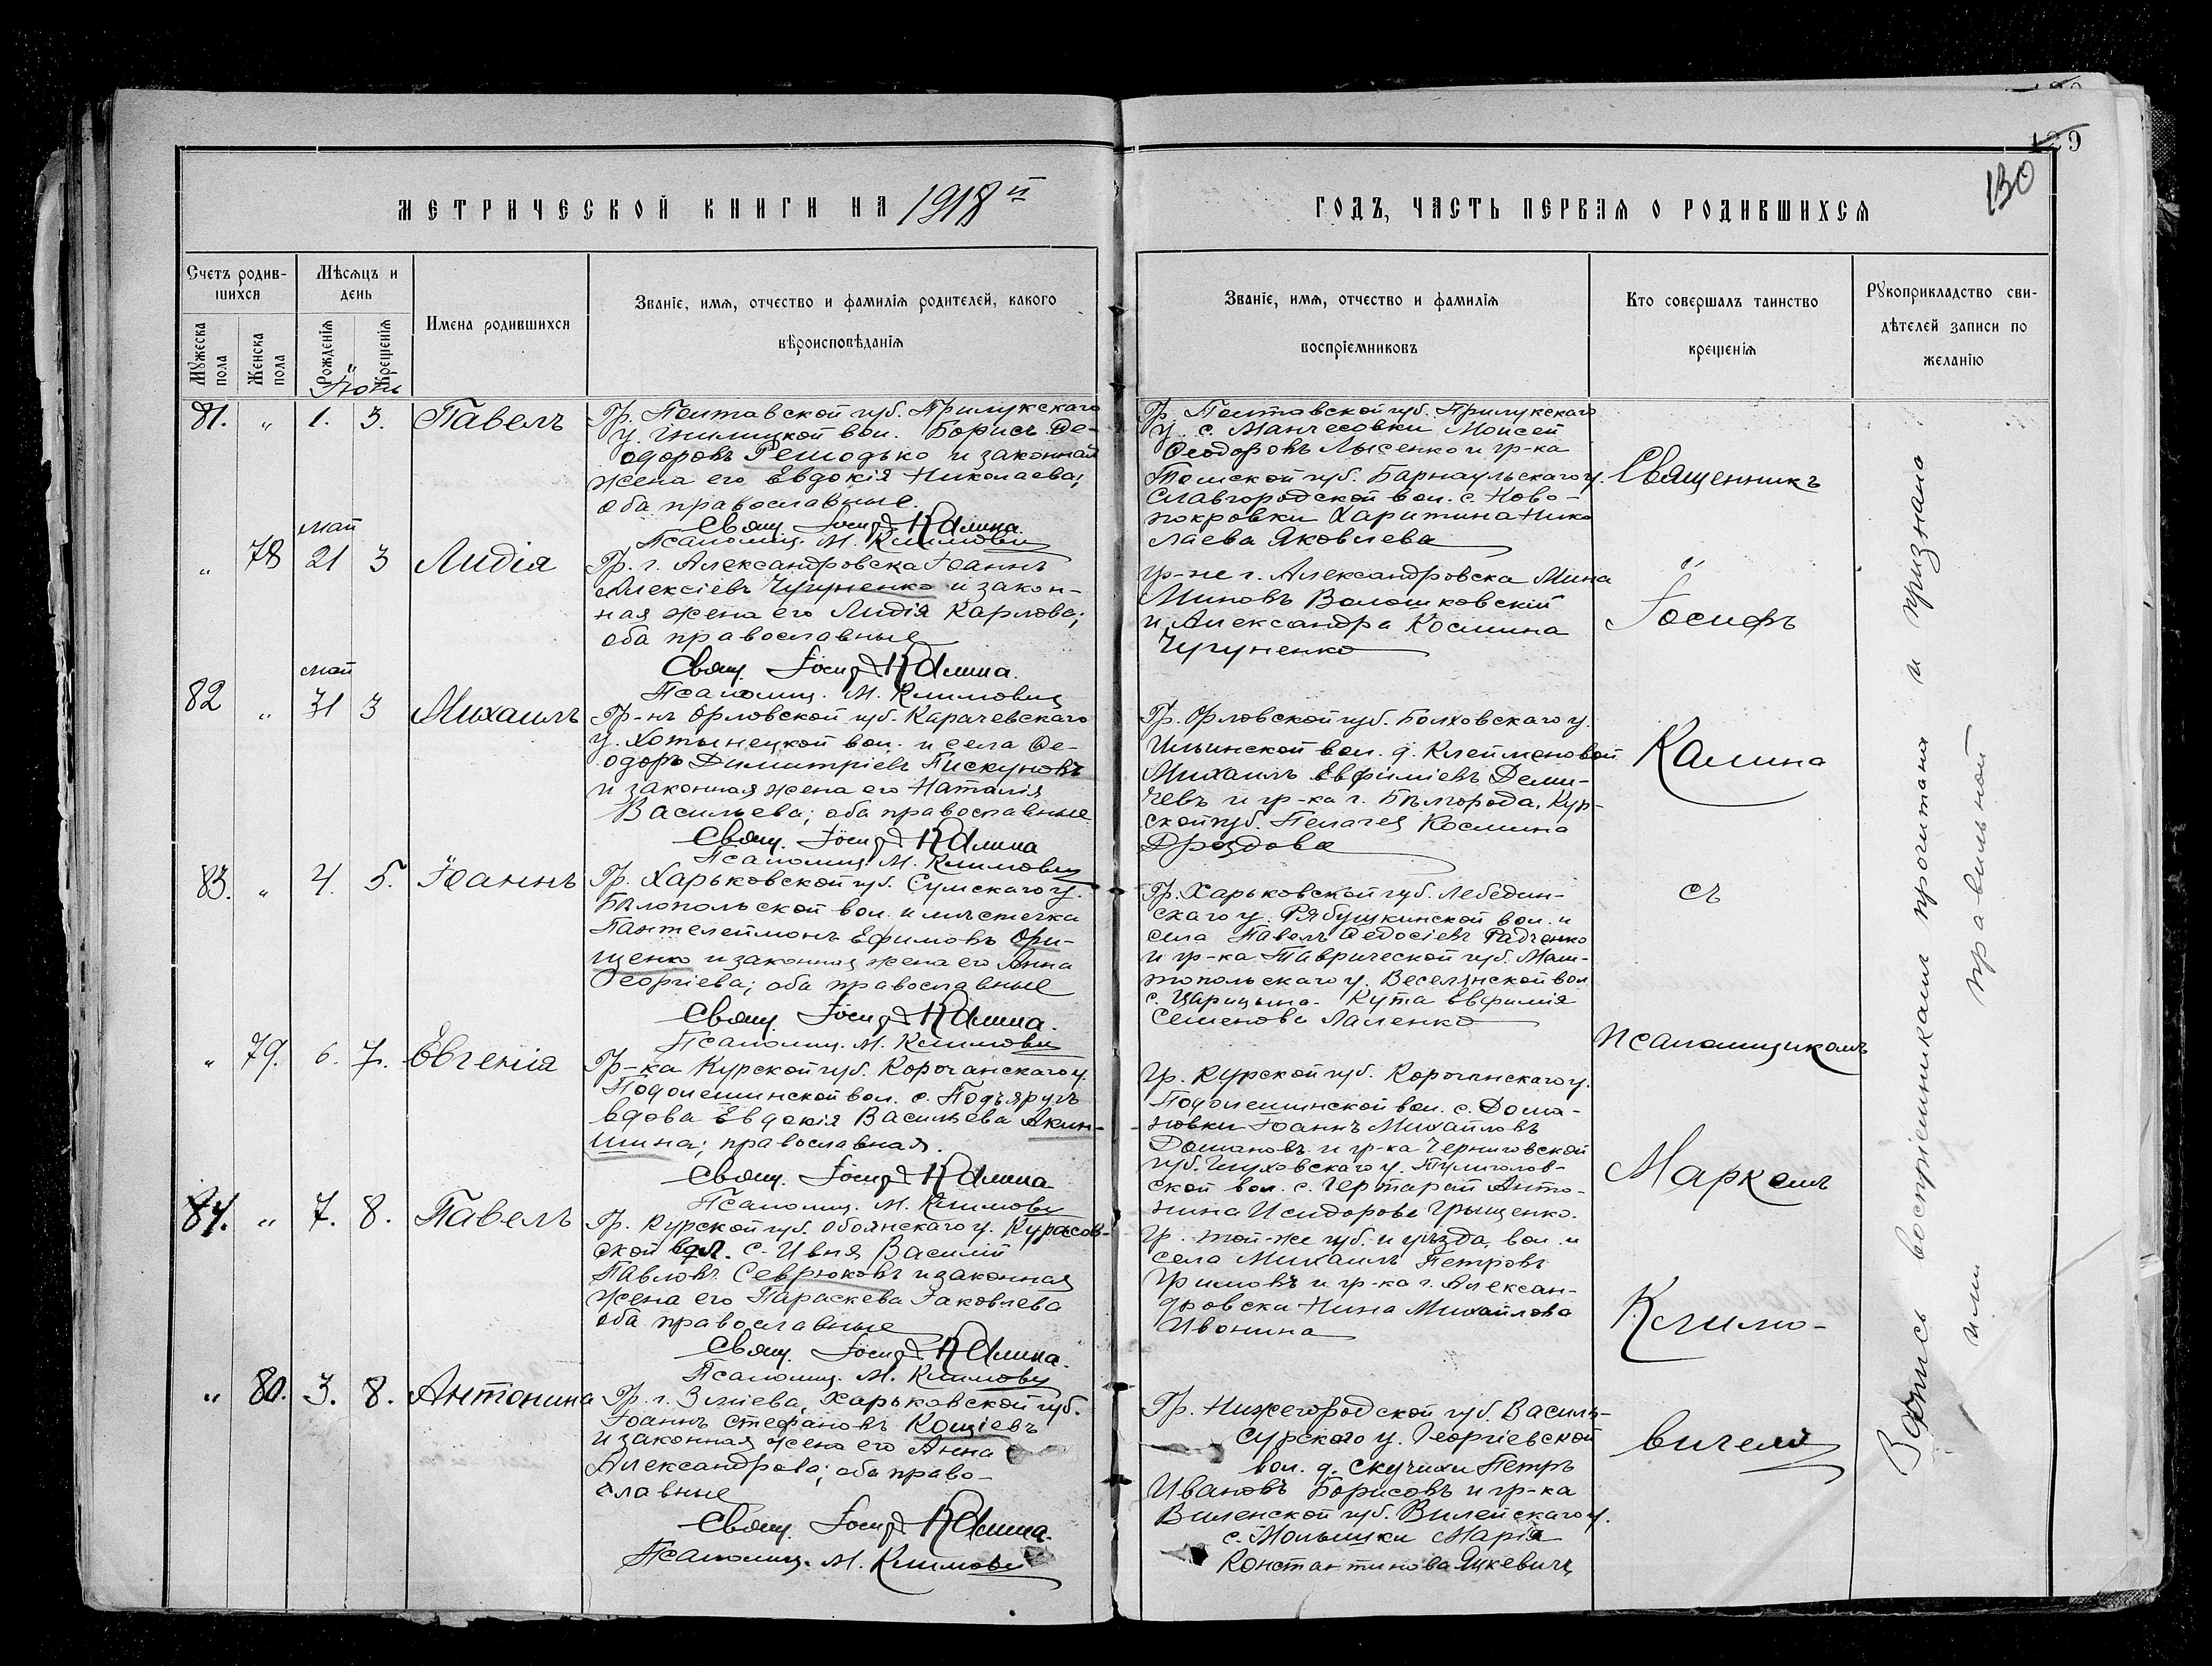 129
130
МЕТРИЧЕСКОЙ КНИГИ НА 1918 й
ГОДЪ, ЧАСТЬ ПЕРВАЯ О РОДИВШИХСЯ
Счетъ родив-
шихся
Мужеска пола
Женска пола
Мѣсяцъ и
день
Рожденія
Крещенія
Имена родившихся
Званіе, имя, отчество и фамилія родителей, какого
вѣроисповѣданія
Званіе, имя, отчество и фамилія
воспріемниковъ
Кто совершалъ таинство
крещенія
Рукоприкладство сви-
дѣтелей записи по
желанію
Іюнь
81. " 1. 3. Павелъ
Гр. Полтавской губ. Прилукскаго
у. Гнилицкой вол. Борисъ Ѳе-
одоровъ Ремодько и законная
жена его Евдокія Николаева;
оба православные.
Свящ. Іосифъ Калина
Псаломщ. М. Климович
Гр. Полтавской губ. Прилукскаго
у. с. Манчесовки Моисей
Ѳеодоровъ Лысенко и гр-ка
Томской губ. Барнаульскаго у.
Славгородской вол. с. Ново-
покровки Харитина Нико
лаева Яковлева
май
" 78 21 3 Лидія
Гр. г. Александровска Іоаннъ
Алексіевъ Чугуненко и закон-
ная жена его Лидія Карлова;
оба православные
Свящ. Іосифъ Калина.
Псаломщ. М. Климович
гр-не г. Александровска Мина
Миновъ Волошковскій
и Александра Космина
Чугуненко
май
82 " 31 3 Михаилъ
Гр-нъ Орловской губ. Карачевскаго
у. Хотынецкой вол. и села Ѳе-
одоръ Димитріевъ Пискуновъ
и законная жена его Наталія
Васильева; оба православные
Свящ. Іосифъ Калина
Псаломщ. М. Климович
Гр. Орловской губ. Болховскаго у.
Ильинской вол. д. Клейменовой
Михаилъ Евфиміевъ Деми-
чевъ и гр-ка г. Бѣлгорода, Кур-
ской губ. Пелагея Космина
Дроздова
83. " 4. 5. Іоаннъ
Гр. Харьковской губ. Сумскаго у.
Бѣлопольской вол. и мѣстечка
Пантелеймонъ Ефимовъ Они-
щенко и законная жена его Анна
Георгіева; оба православные
Свящ. Іосифъ Калина.
Псаломщ. М. Климович
Гр. Харьковской губ. Лебедин-
скаго у. Рябушкинской вол. и
села Павелъ Ѳедосіевъ Радченко
и гр-ка Таврической губ. Мели-
топольскаго у. Веселянской вол.
с. Царицына-Кута Евфимія
Семенова Лаленко
" 79. 6. 7. Евгенія
Гр-ка Курской губ. Корочанскаго у.
Подолешинской вол. с. Подъяругъ
вдова Евдокія Васильева Акин-
шина; православная.
Свящ. Іосифъ Калина
Псаломщ. М. Климович
Гр. Курской губ. Корочанскаго у.
Подолешинской вол. с. Дома-
новки Іоаннъ Михайловъ
Домановъ и гр-ка Черниговской
губ. Глуховскаго у. Тулиголов-
ской вол. с. Чертарай Анто-
нина Исидорова Грищенко.
84. " 7. 8. Павелъ
Гр. Курской губ. Обоянскаго у. Курасов-
ской вол. с. Ивня Василій
Павловъ Севрюковъ и законная
жена его Параскева Іаковлева
оба православные
Свящ. Іосифъ Калина.
Псаломщ. М. Климович
Гр. той-же губ. и уѣзда, вол. и
села Михаилъ Петровъ
Гримовъ и гр-ка г. Алексан-
дровска Нина Михайлова
Ивонина
" 80. 3. 8. Антонина
Гр. г. Зміева, Харьковской губ.
Іоаннъ Стефановъ Кощіевъ
и законная жена его Анна
Александрова; оба право-
славные
Свящ. Іосифъ Калина.
Псаломщ. М. Климович
Гр. Нижегородской губ. Василь-
сурскаго у. Георгіевской
вол. д. Скучихи Петръ
Ивановъ Борисовъ и гр-ка
Виленской губ. Вилейскаго у.
с. Мольшки Марія
Константинова Яцкевичъ
Священникъ
"
Іосифъ
Калина
съ
псаломщикомъ
Маркомъ
Климо-
вичемъ
Запись воспріемникамъ прочитана и признана
ими правильной